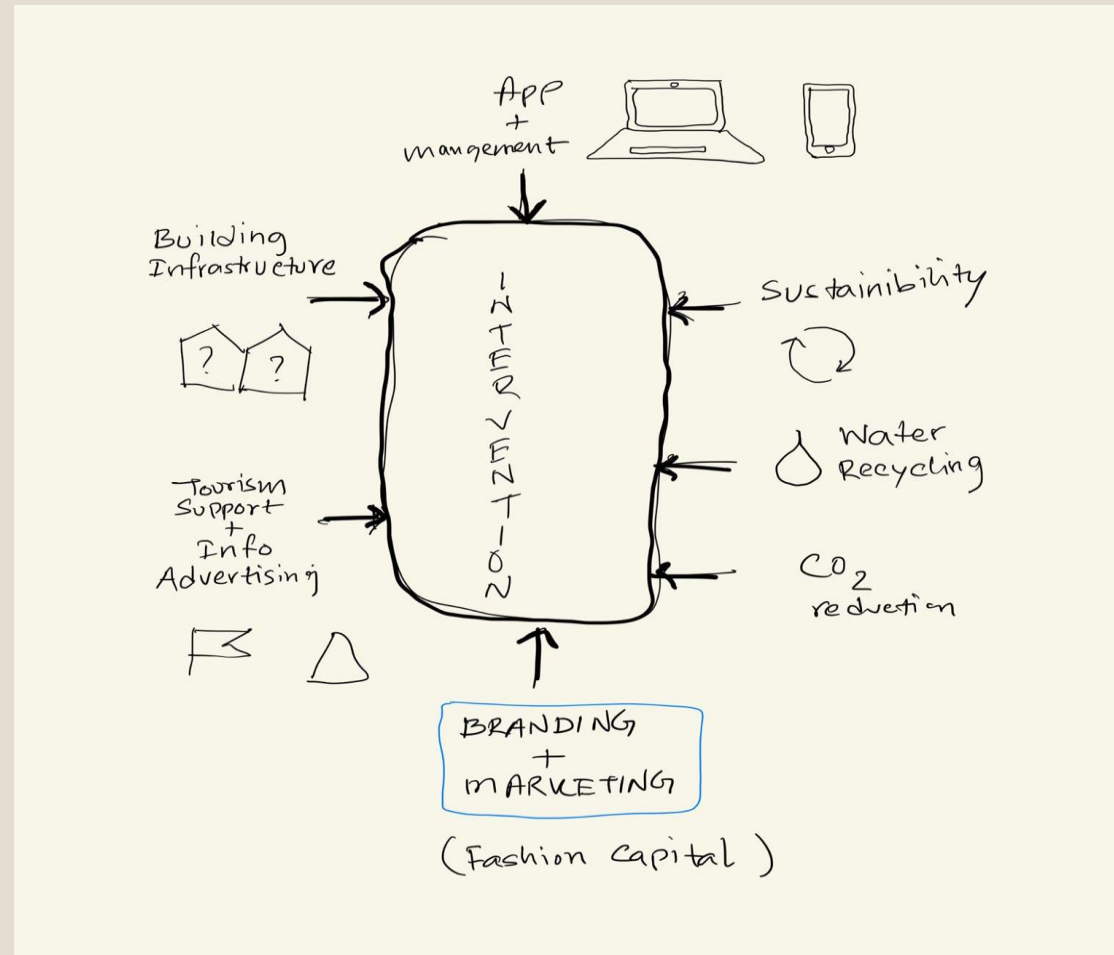 App
+
mangement
Building
Infrastructure
? ?
Tourism
Support
+
Info
Advertising
I
N
T
E
R
V
E
N
T
I
O
N
Sustainibility
Water
Recycling
CO2
reduction
BRANDING
+
MARKETING
(Fashion Capital)